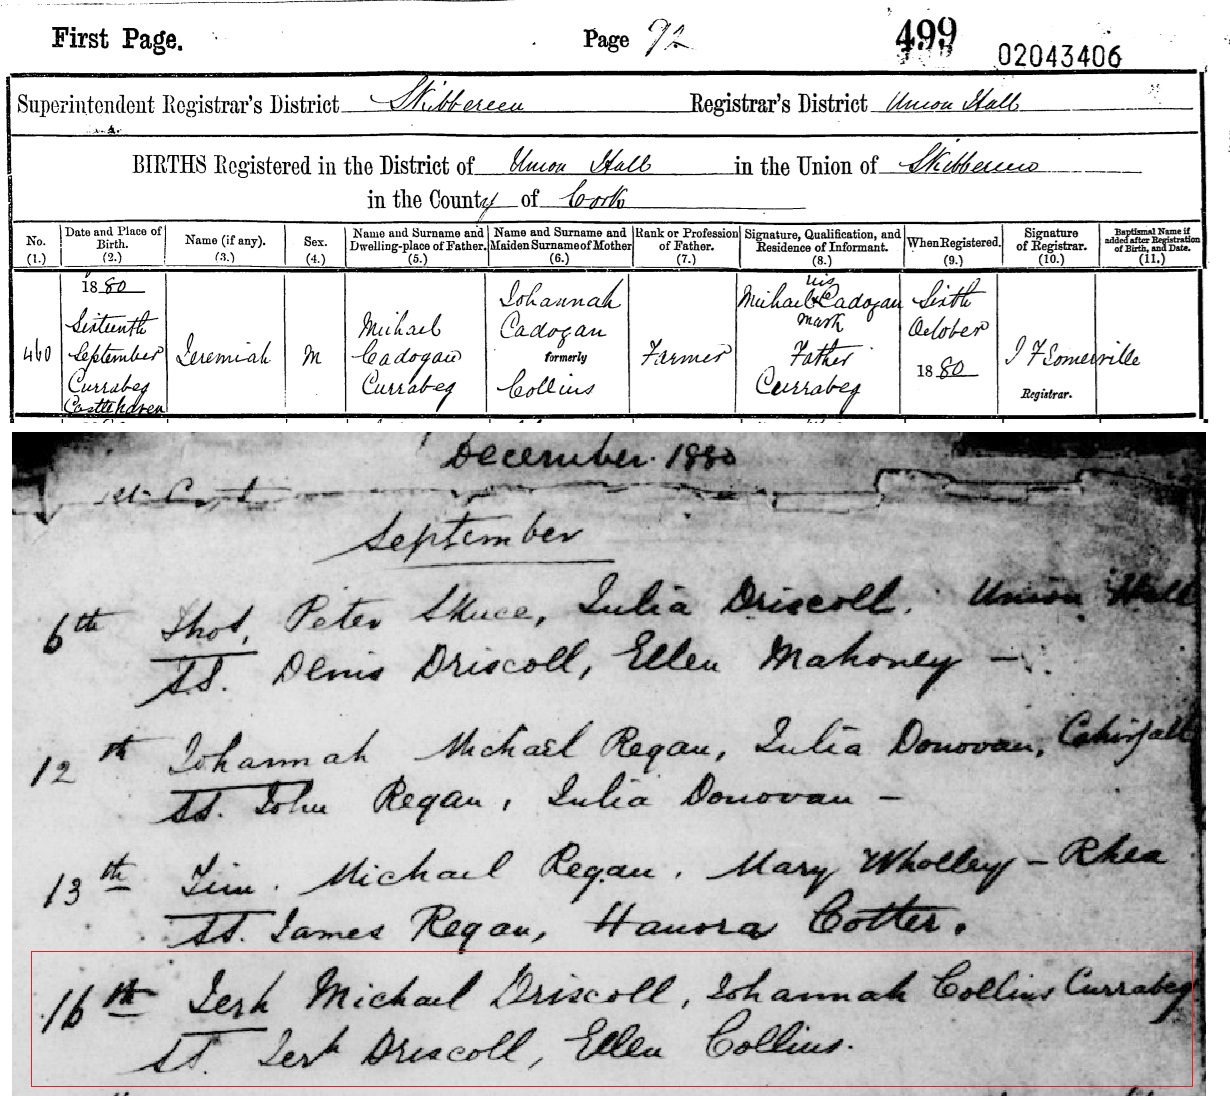 First Page. Page 92 499 02043406
Superintendent Registrar's District Skibbereen Registrar's District Union Hall
BIRTHS Registered in the District of Union Hall in the Union of Skibbereen
in the County of Cork
No. (1.) Date and Place of Birth. (2.) Name (if any). (3.) Sex. (4.) Name and Surname and Dwelling-place of Father. (5.) Name and Surname and Maiden Surname of Mother (6.) Rank or Profession of Father. (7.) Signature, Qualification, and Residence of Informant. (8.) When Registered. (9.) Signature of Registrar. (10.) Baptismal Name if added after Registration of Birth, and Date. (11.)
460 1880 Sixteenth September Currabeg Castlehaven Jeremiah M Michael Cadogan Currabeg Johannah Cadogan formerly Collins Farmer Michael x Cadogan his mark Father Currabeg Sixth October 1880 J F Somerville Registrar.
December 1880
September
6th Thos. Peter Skuce, Julia Driscoll. Union Hall
SS. Denis Driscoll, Ellen Mahoney -
12th Johannah Michael Regan, Julia Donovan,
SS. John Regan, Julia Donovan -
13th Tim. Michael Regan. Mary Wholley - Rhea
SS. James Regan, Hanora Cotter.
16th Jerh Michael Driscoll, Johannah Collins Currabeg
SS. Jerh Driscoll, Ellen Collins.